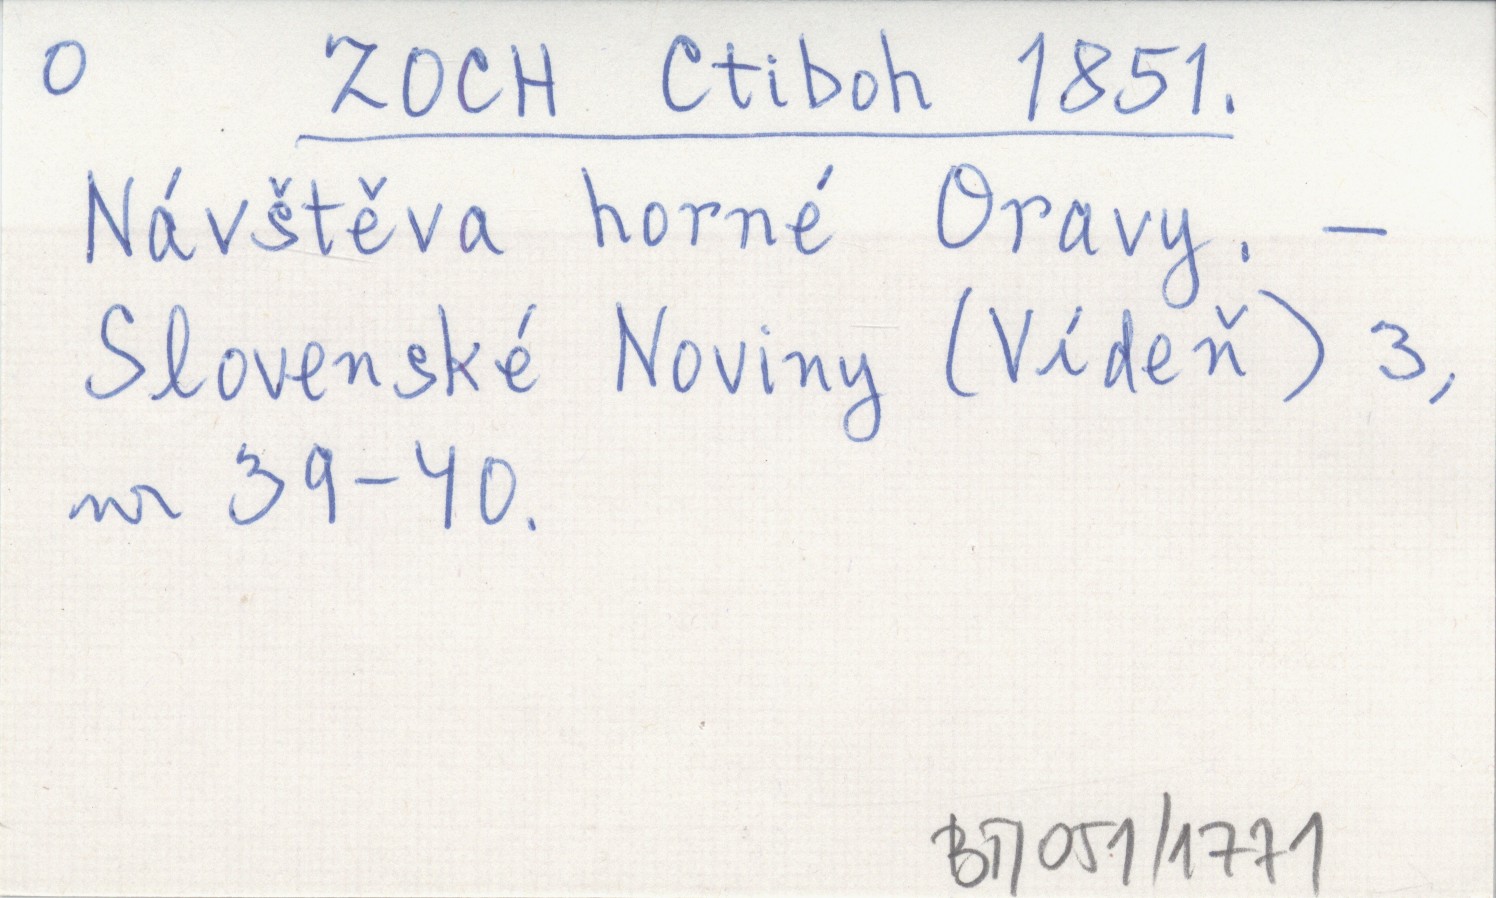 O ZOCH Ctiboh 1851.
Návštěva horné Oravy. –
Slovenské Noviny (Vídeň) 3,
nr 39-40.
051/1771